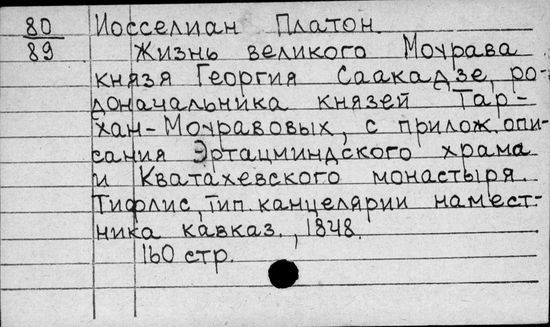 80 Иосселиан Платон.
89 Жизнь великого Моурава
князя Георгия Саакадзе, ро-
доначальника князей Тар-
хан-Моуравовых, с прилож. опи-
сания Эртацминдского храма
и Кватахевского монастыря.
Тифлис, тип. канцелярии намест-
ника кавказ., 1848.
160 стр.